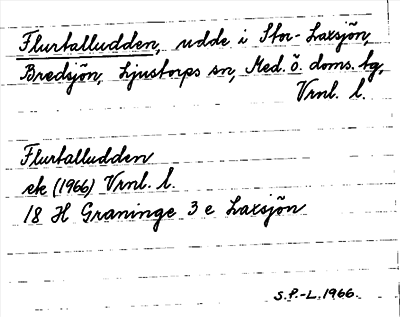 Flurtalludden, udde i Stor-Laxsjön,
Bredsjön, Ljustorps sn, Med. ö. doms. tg,
Vrnl. l.
Flurtalludden
ek (1966) Vrnl. l.
18 H Graninge 3 e Laxsjön
S.P.-L. 1966.